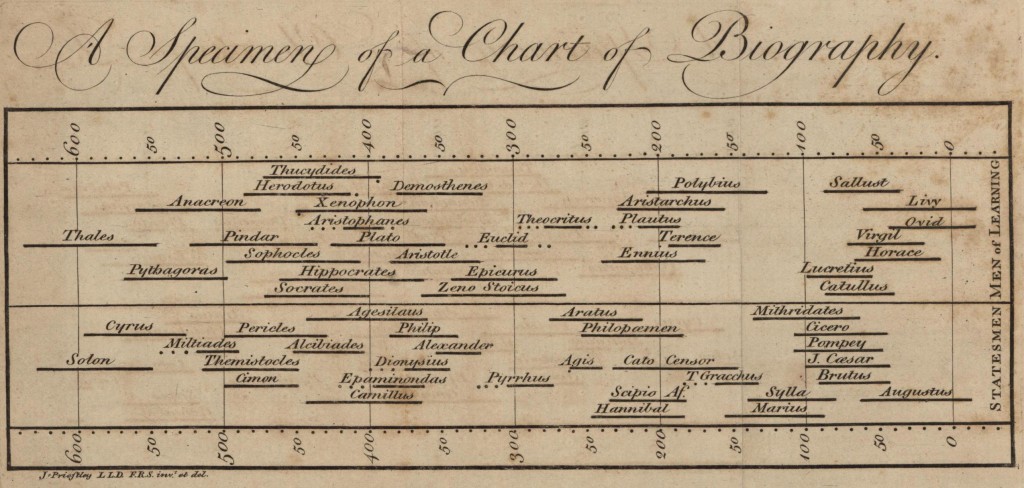 A Specimen of a Chart of Biography.
600 50 500 50 400 50 300 50 200 50 100 50 0
Thucydides
Herodotus Demosthenes Polybius Sallust
Anacreon Xenophon Aristarchus Livy
Aristophanes Theocritus Plautus Ovid
Thales Pindar Plato Euclid Terence Virgil
Sophocles Aristotle Ennius Horace
Pythagoras Hippocrates Epicurus Lucretius
Socrates Zeno Stoicus Catullus
MEN of LEARNING
Agesilaus Aratus Mithridates
Cyrus Pericles Philip Philopæmen Cicero
Miltiades Alcibiades Alexander Pompey
Solon Themistocles Dionysius Agis Cato Censor J. Cæsar
Cimon Epaminondas Pyrrhus T Gracchus Brutus
Camillus Scipio Af. Sylla Augustus
Hannibal Marius
STATESMEN
600 50 500 50 400 50 300 50 200 50 100 50 0
J. Priestley L.L.D. F.R.S. inv.t et del.